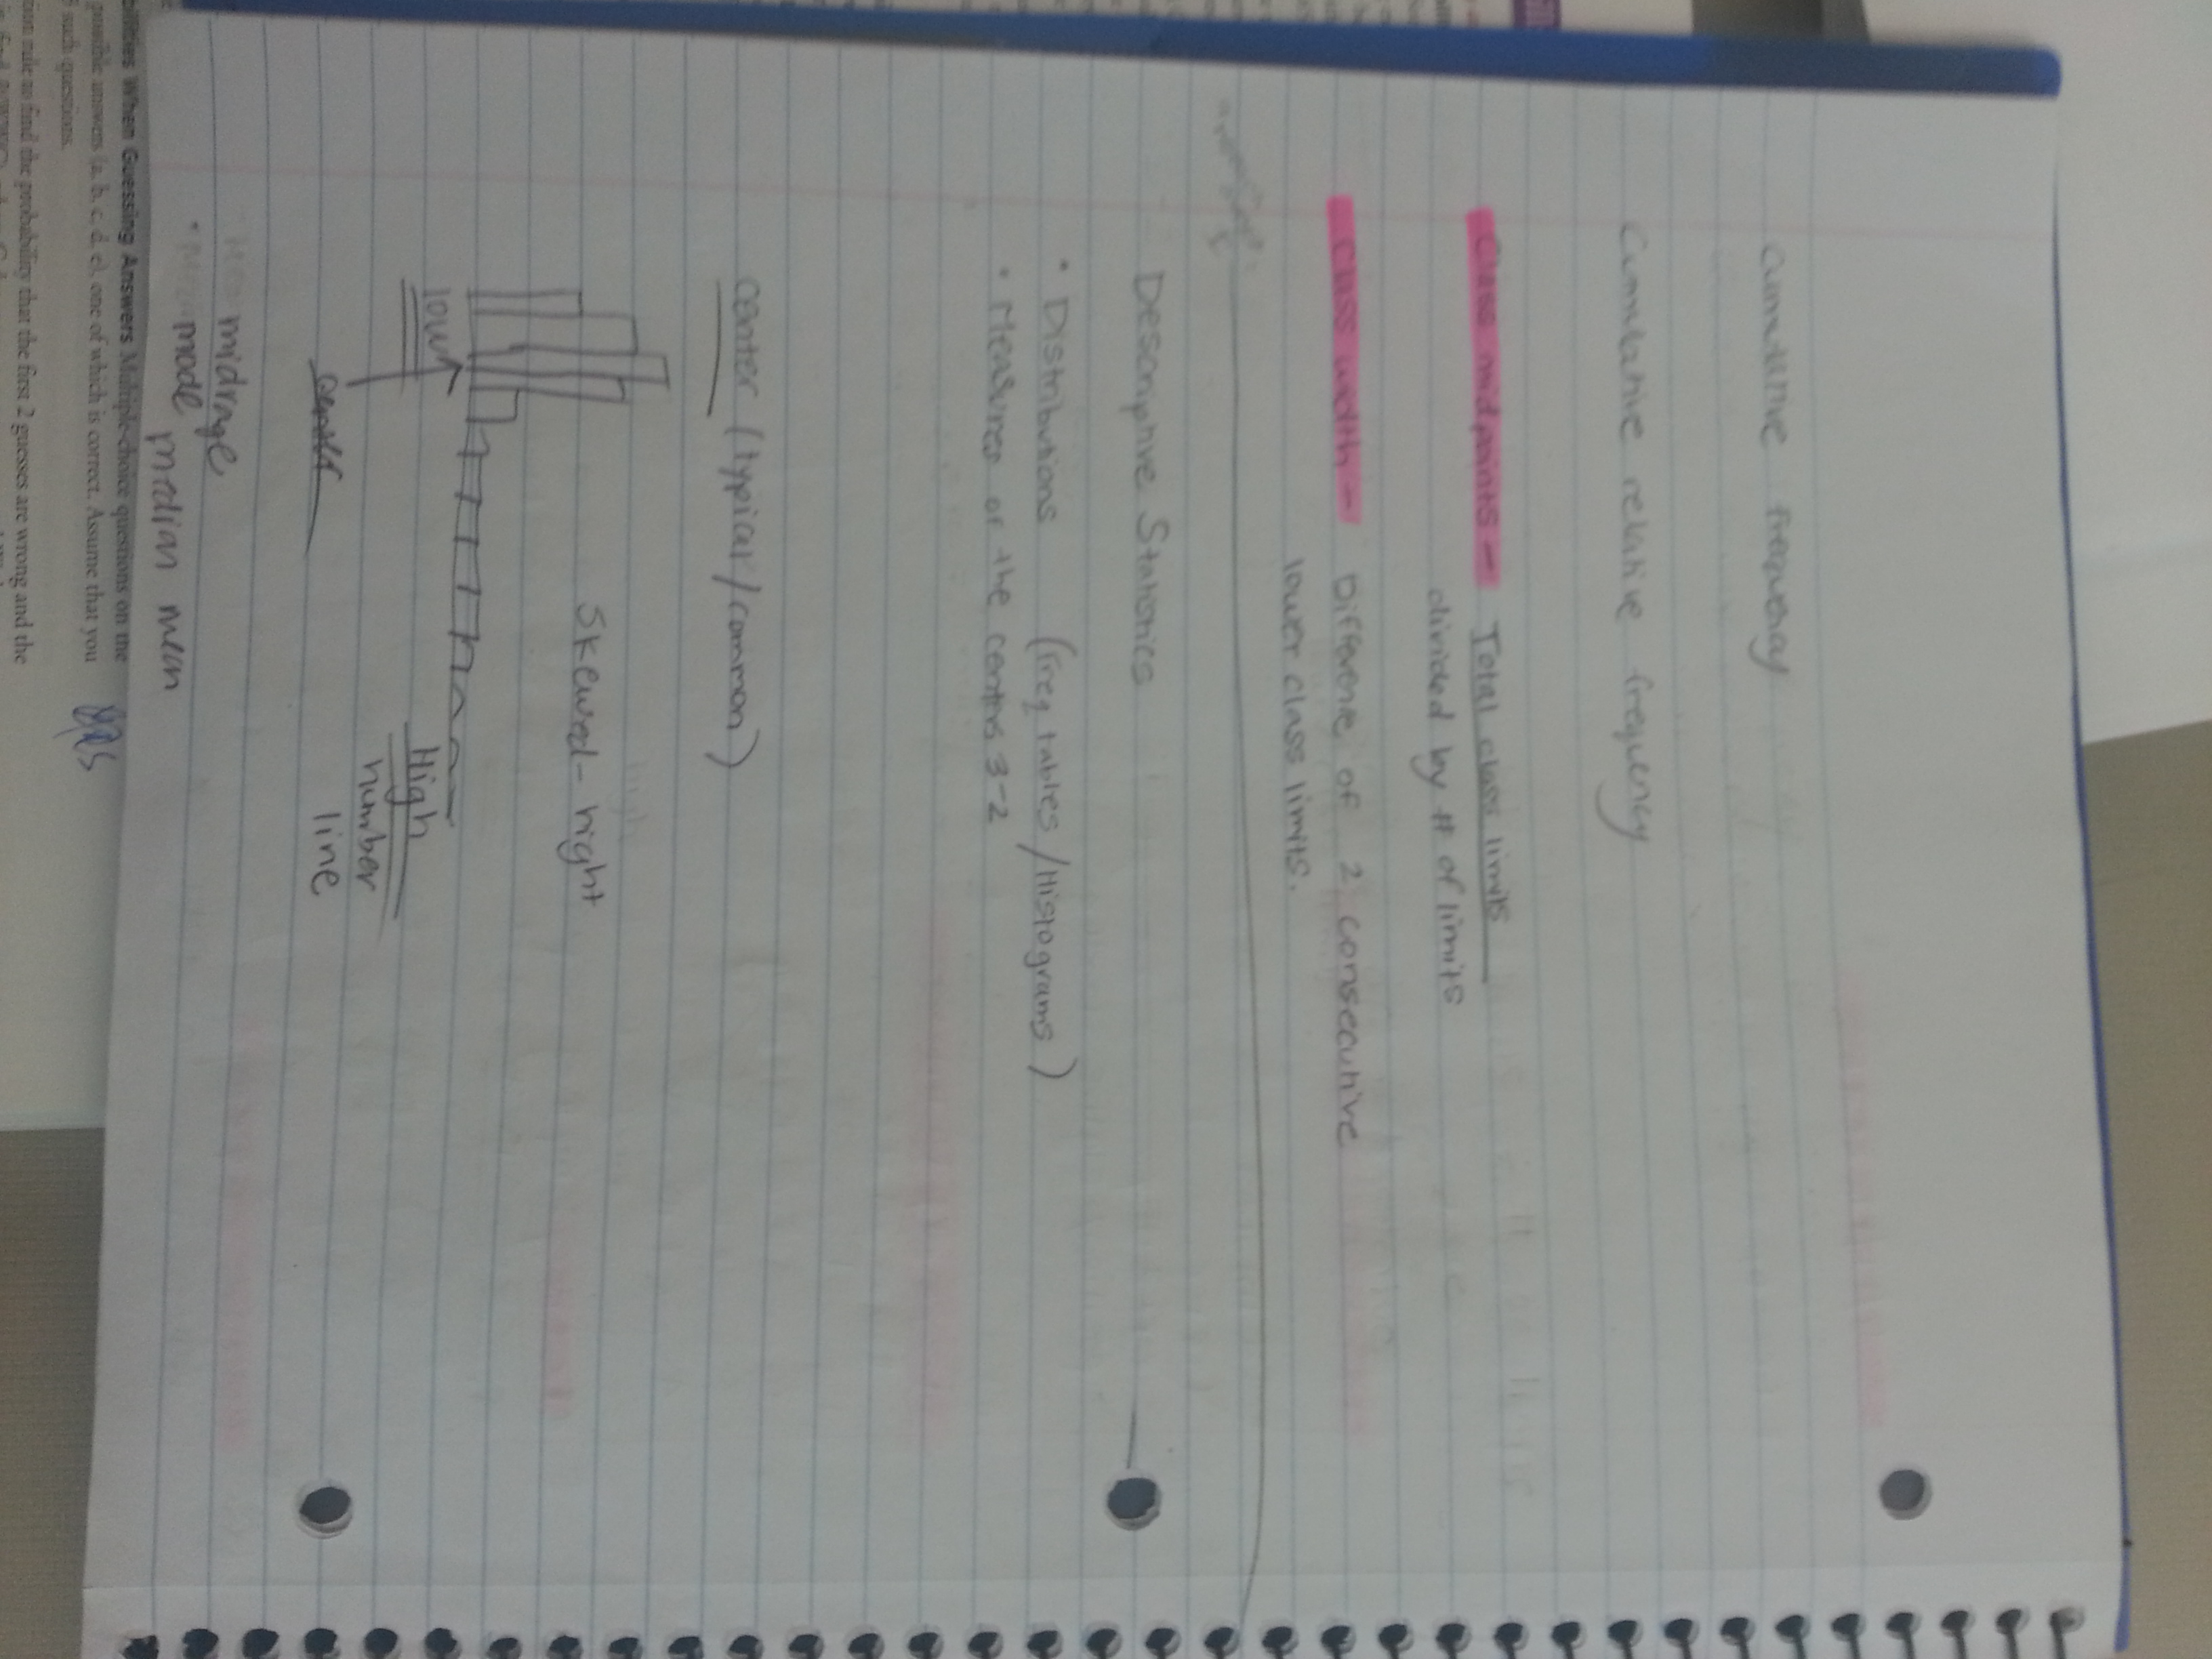 Cumulative frequency
Cumulative relative frequency
Class midpoints - Total class limits
divided by # of limits
class width - Difference of 2 consecutive
lower class limits.
Descriptive Statistics
• Distributions (freq tables / Histograms)
• Measures of the centers 3-2
center (typical/common)
Skewed-right
low
High
number
line
midrange
mode
median mean
bilities When Guessing Answers Multiple-choice questions on the
possible answers (a, b, c, d, e), one of which is correct. Assume that you
such questions.
tion rule to find the probability that the first 2 guesses are wrong and the